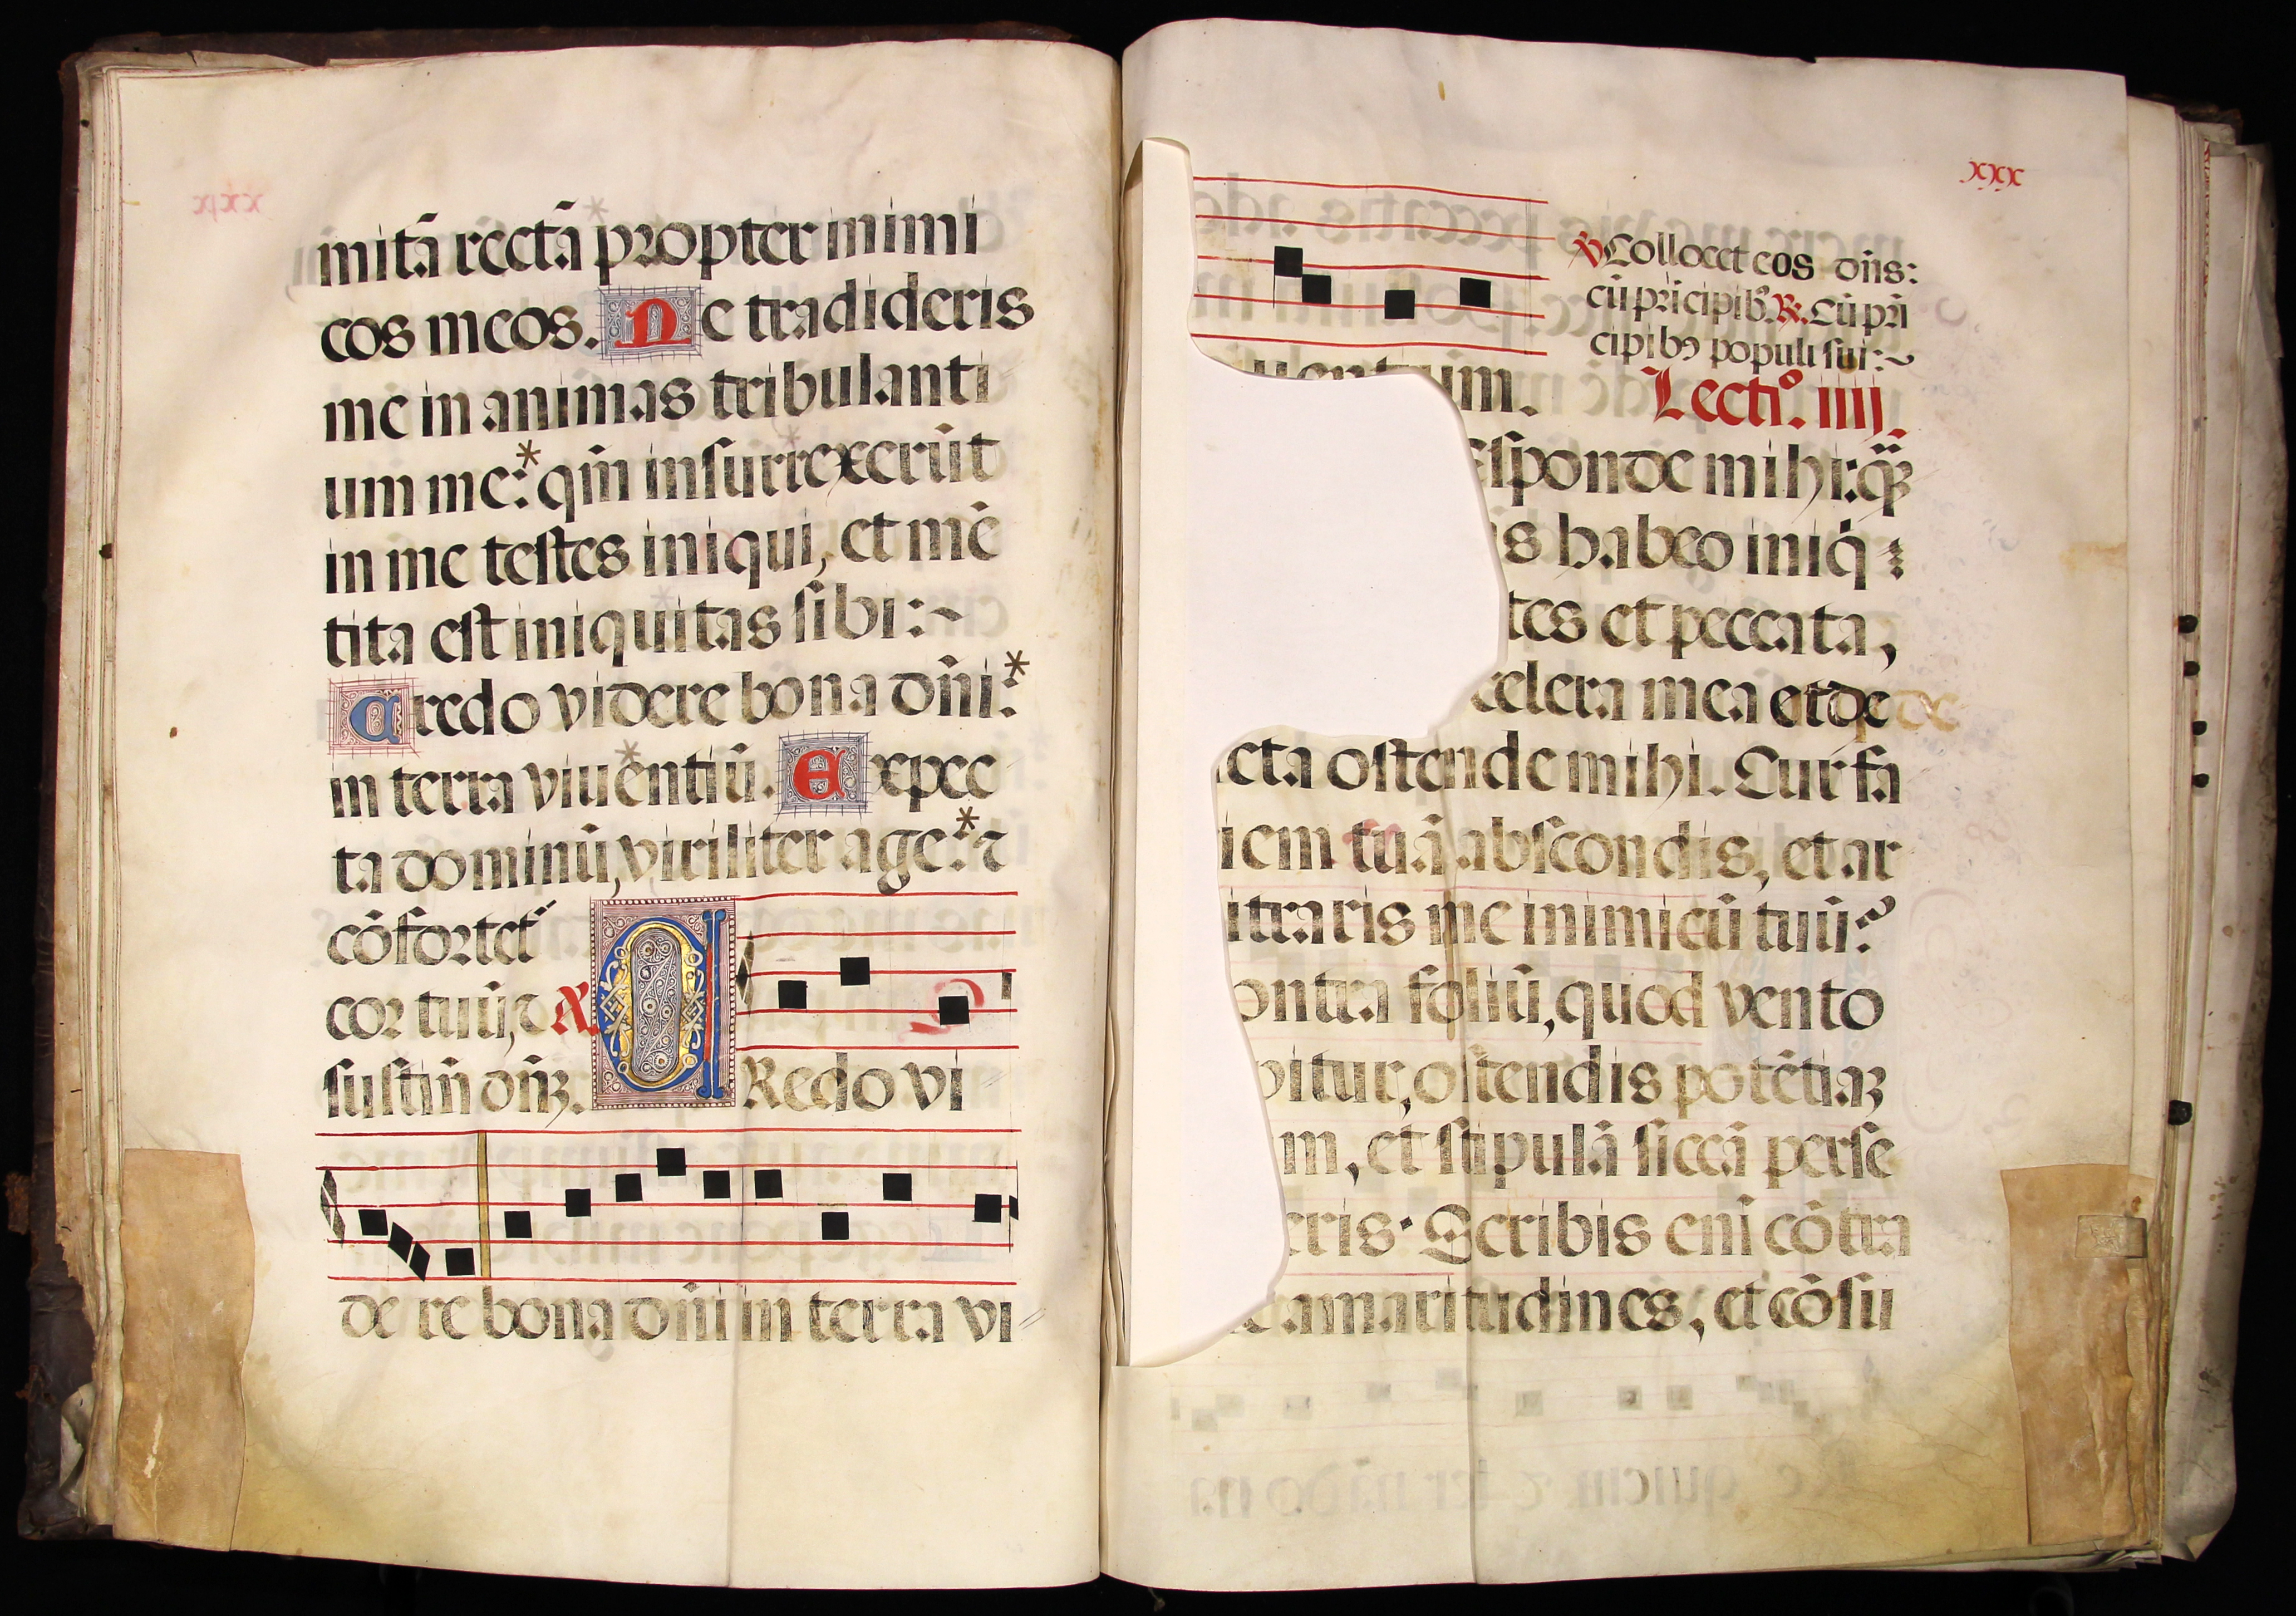 mitã rectã propter inimi
cos meos. Ne tradideris
me in animas tribulanti
um me:* qm̃ insurrexerũt
in me testes iniqui, et mẽ
tita est iniquitas sibi:~
Credo videre bona dñi:*
in terra viuẽntiũ. Expec
ta dominũ, viriliter age:* ⁊
cõfortet᷑
cor tuũ, ⁊
sustiñ dñꝫ.
CRedo vi
de re bona dñi in terra vi
xxx
℣ Collocet eos dñs:
cũ pricipibꝰ. ℟. Cũ pri
cipibꝰ populi sui:~
uentium.
Lectiº. iiij.
esponde mihi: q̃
is habeo iniq̇
tes et peccata,
celera mea et de
icta ostende mihi. Cur fa
iem tuã abscondis, et ar
itraris me inimicũ tuũ?
ontra foliũ, quod vento
pitur, ostendis potẽtiaꝫ
m, et stipulã siccã perse
eris. Scribis eni cõtra
e amaritudines, et cõsu